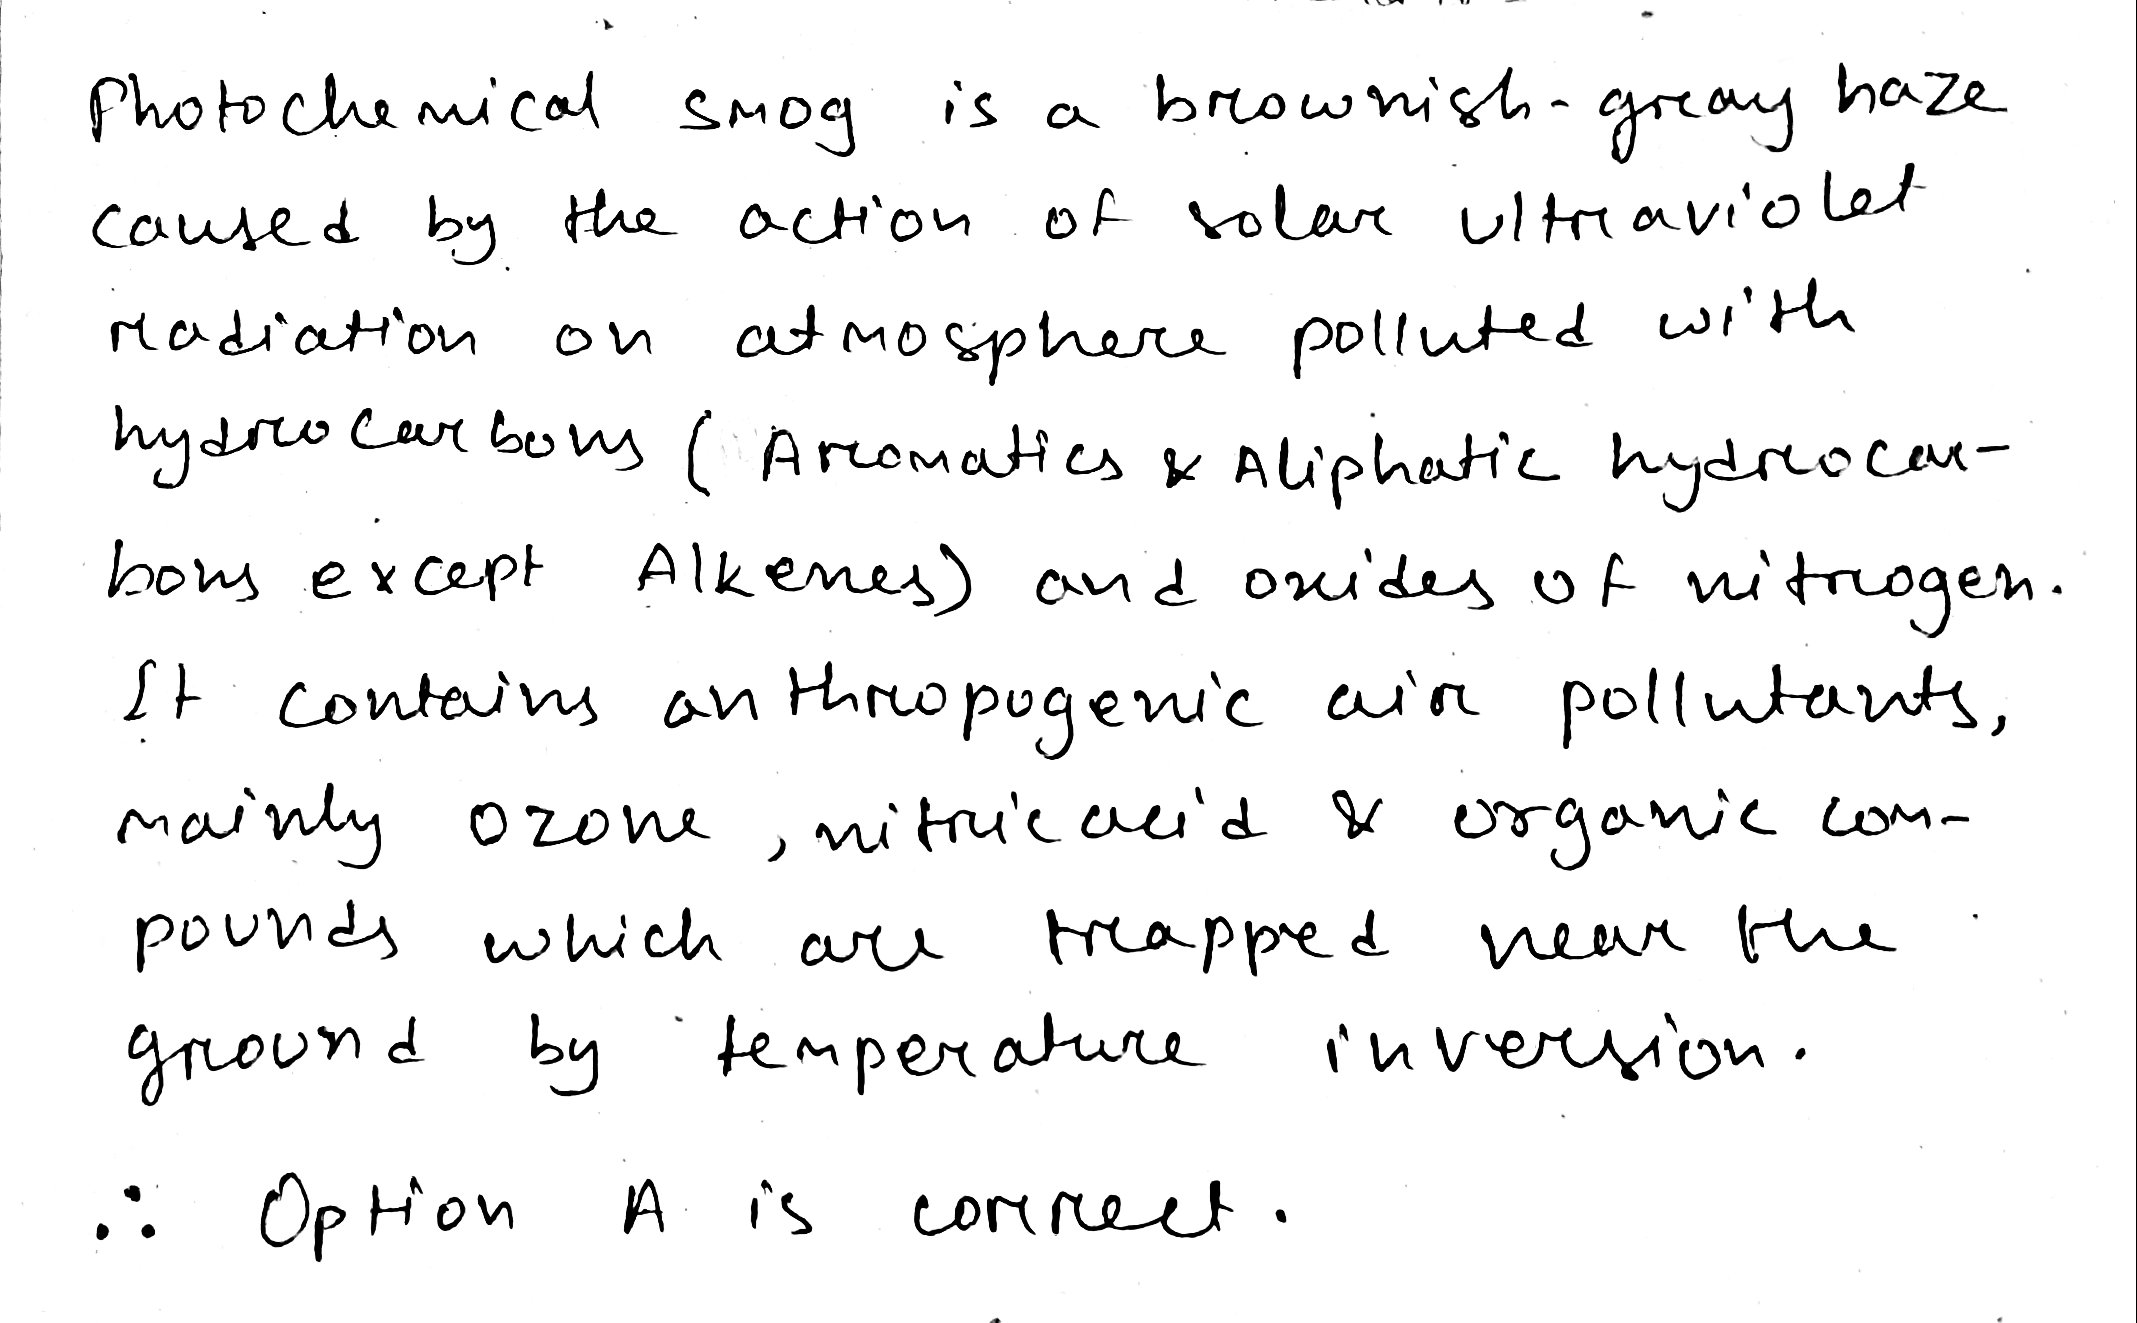 Photochemical smog is a brownish-gray haze
caused by the action of solar ultraviolet
radiation on atmosphere polluted with
hydrocarbons ( Aromatics & Aliphatic hydrocar-
bons except Alkenes) and oxides of nitrogen.
It contains anthropogenic air pollutants,
mainly ozone , nitric acid & organic com-
pounds which are trapped near the
ground by temperature inversion.
∴ Option A is correct.